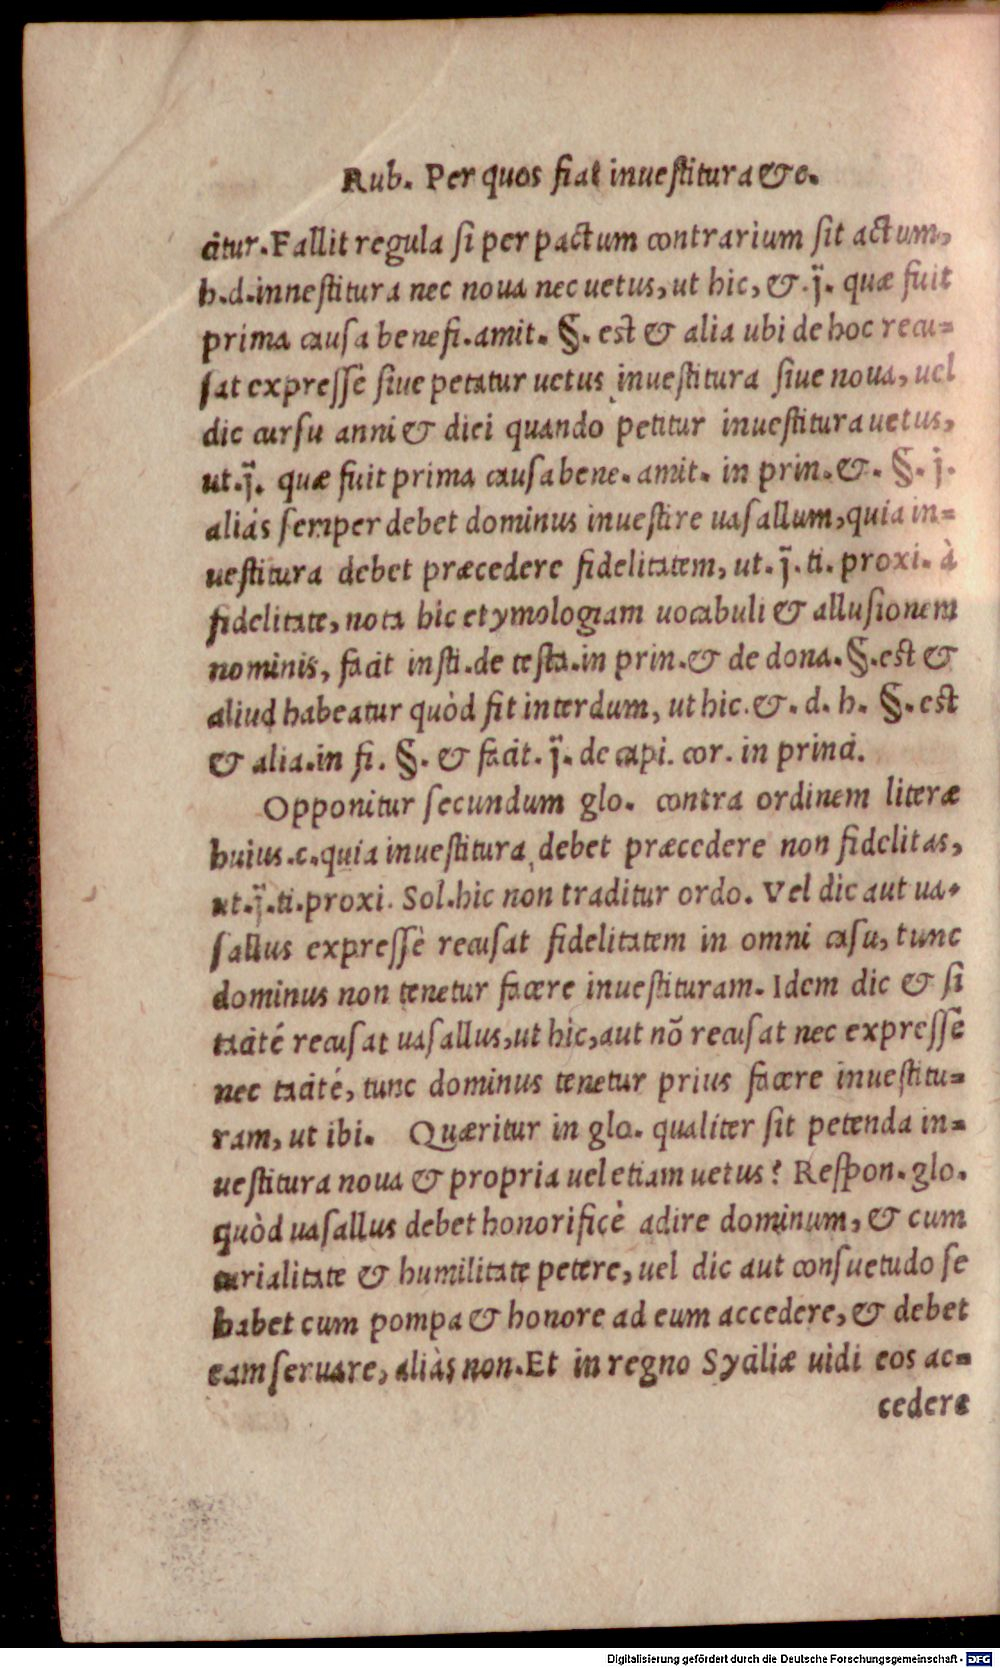 Rub. Per quos fiat inuestitura &c.
citur. Fallit regula si per pactum contrarium sit actum,
h.d.inuestitura nec noua nec uetus, ut hic, &.j̈. quæ fuit
prima causa benefi.amit. §. est & alia ubi de hoc recu-
sat expressè siue petatur uetus inuestitura siue noua, uel
dic cursu anni & diei quando petitur inuestitura uetus,
ut.j̈. quæ fuit prima causa bene. amit. in prin. &. §. j.
aliàs semper debet dominus inuestire uasallum, quia in-
uestitura debet præcedere fidelitatem, ut. j̈. ti. proxi. à
fidelitate, nota hic etymologiam uocabuli & allusionem
nominis, facit insti.de testa.in prin.& de dona.§.est &
aliud habeatur quòd fit interdum, ut hic. &. d. h. §. est
& alia.in fi. §. & facit. j̈. de capi. cor. in princi.
Opponitur secundum glo. contra ordinem literæ
huius.c.quia inuestitura debet præcedere non fidelitas,
ut.j̈.ti.proxi. Sol.hic non traditur ordo. Vel dic aut ua-
sallus expressè recusat fidelitatem in omni casu, tunc
dominus non tenetur facere inuestituram. Idem dic & si
tacité recusat uasallus, ut hic, aut nõ recusat nec expressè
nec tacité, tunc dominus tenetur prius facere inuestitu-
ram, ut ibi. Quæritur in glo. qualiter sit petenda in-
uestitura noua & propria uel etiam uetus? Respon. glo.
quòd uasallus debet honorificè adire dominum, & cum
curialitate & humilitate petere, uel dic aut consuetudo se
habet cum pompa & honore ad eum accedere, & debet
eam seruare, aliàs non. Et in regno Syciliæ uidi eos ac-
cedere
Digitalisierung gefördert durch die Deutsche Forschungsgemeinschaft - DFG